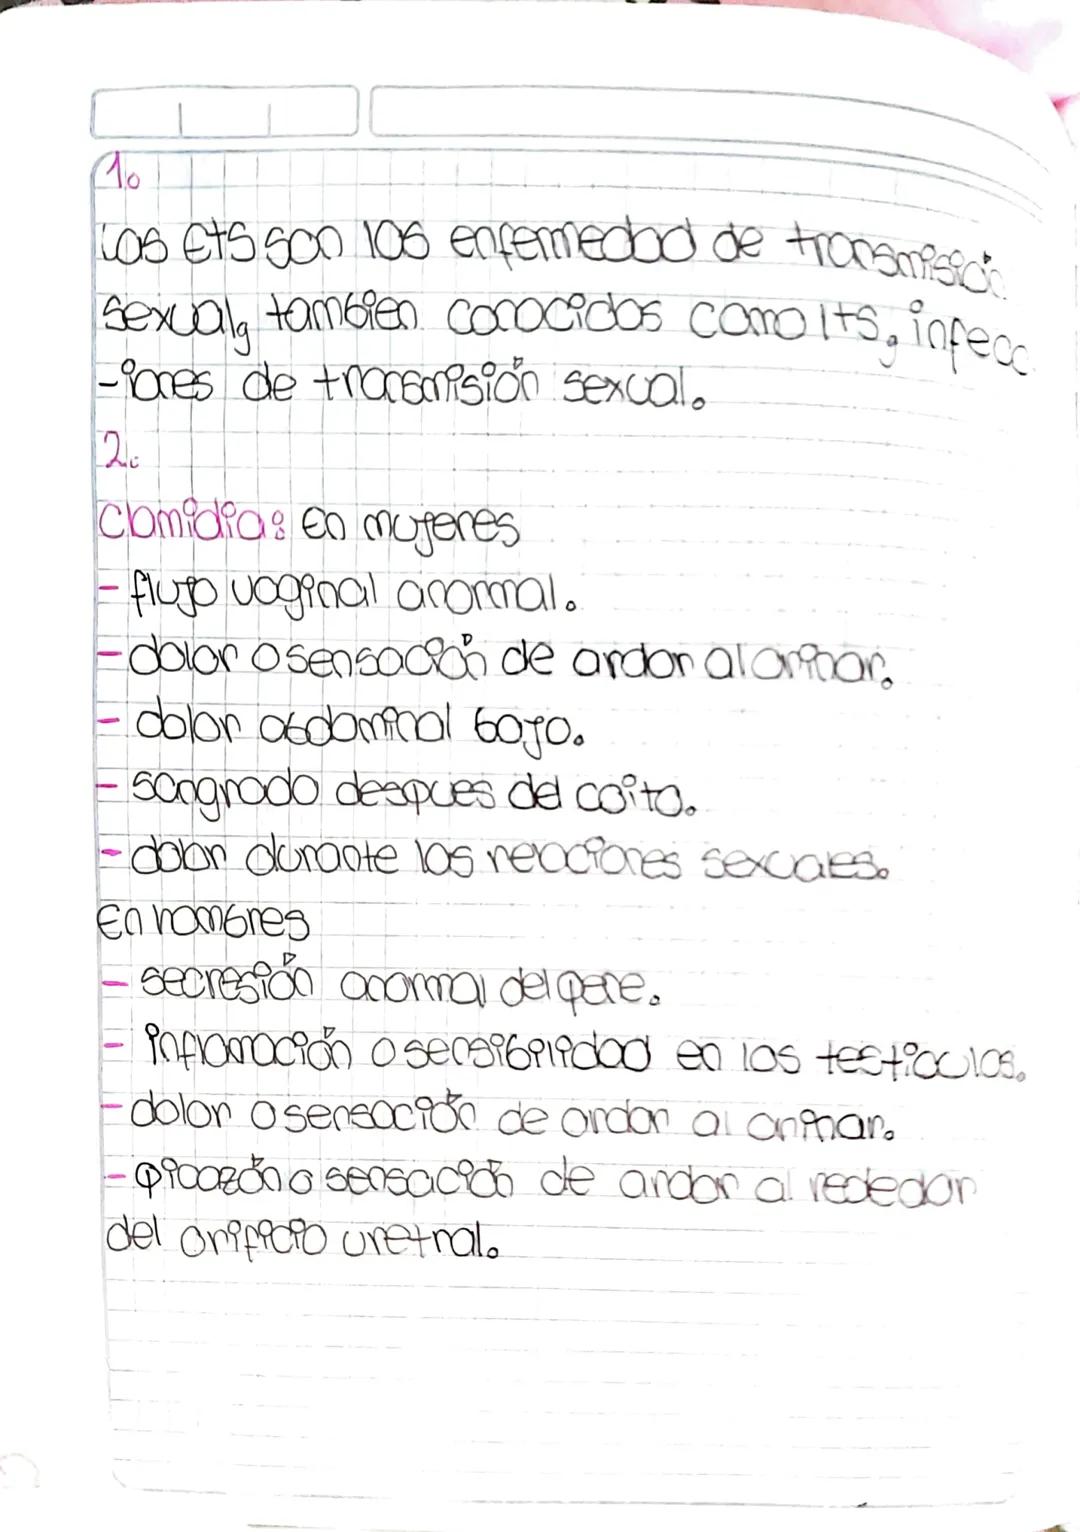 1.
Las ETS son las enfermedad de transmisión
sexual, tambien conocidas como ITS, infecc
-iones de transmisión sexual.
2.
Clamidia: En mujeres
- flujo vaginal anormal.
- dolor o sensación de ardor al orinar.
- dolor abdominal bajo.
- sangrado despues del coito.
- dolor durante las relaciones sexuales.
En hombres
- secresión anormal del pene.
- inflamación o sensibilidad en los testiculos.
- dolor o sensación de ardor al orinar.
- picazón o sensación de ardor al rededor
del orificio uretral.